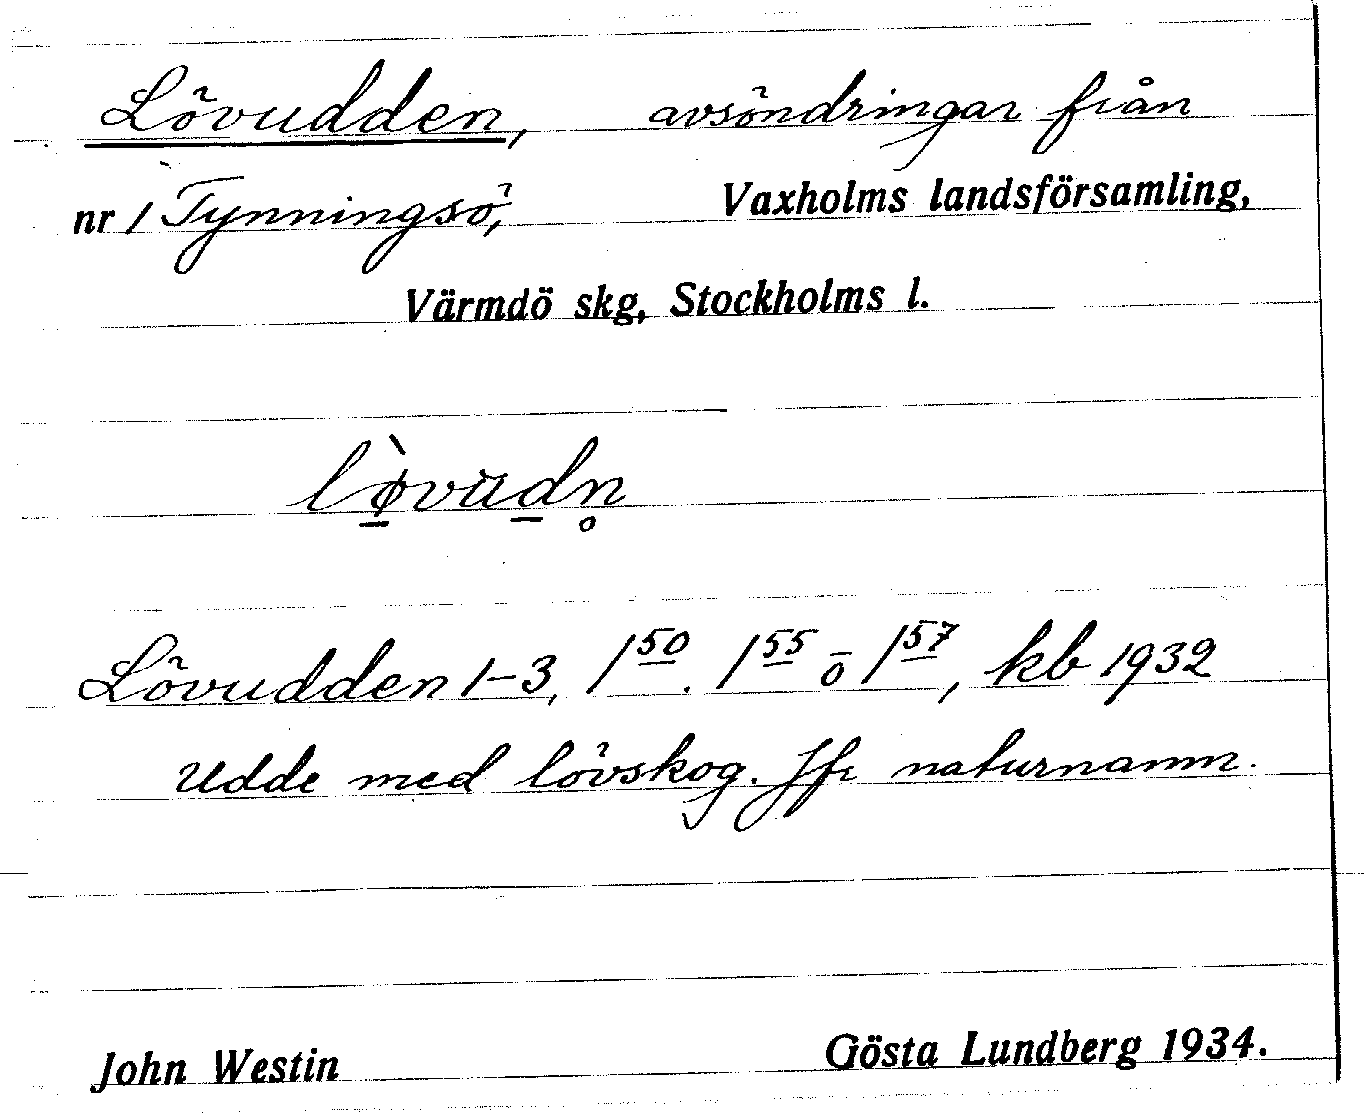 Lövudden, avsöndringar från
nr 1 Tynningsö, Vaxholms landsförsamling,
Värmdö skg, Stockholms l.
lø̀vüdn̥
Lövudden 1-3, 1⁵⁰. 1⁵⁵ o 1⁵⁷, kb 1932
Udde med lövskog. Jfr naturnamn.
John Westin Gösta Lundberg 1934.